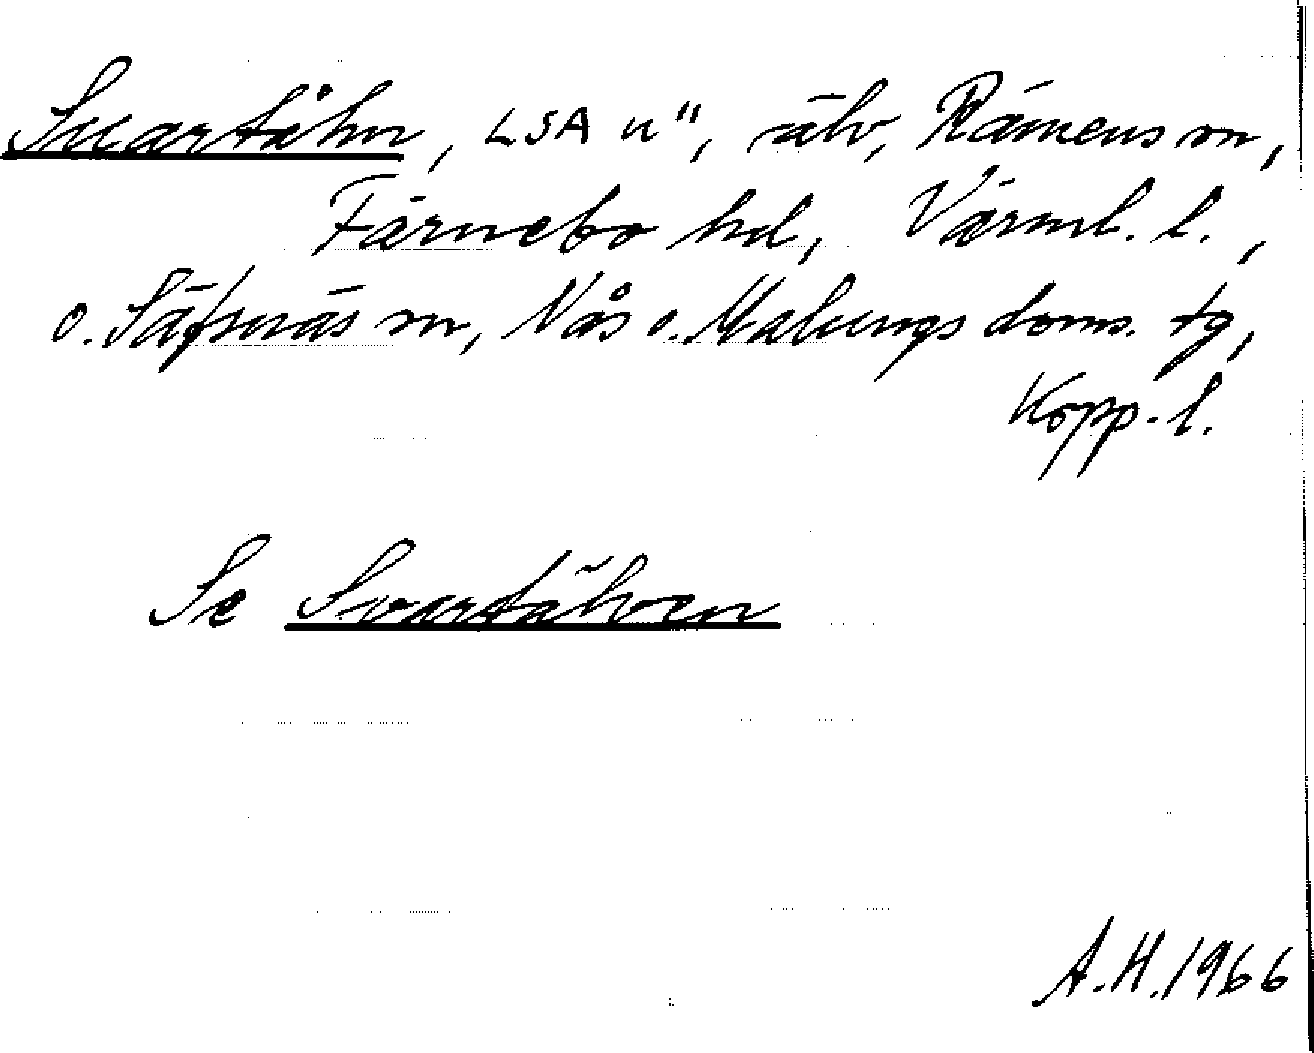 Svartåhn, LSA u", älv, Rämens sn,
Färnebo hd, Värml. l.,
o. Säfsnäs sn, Nås o. Malungs doms. tg,
Kopp. l.
Se Svartälven
A.H. 1966